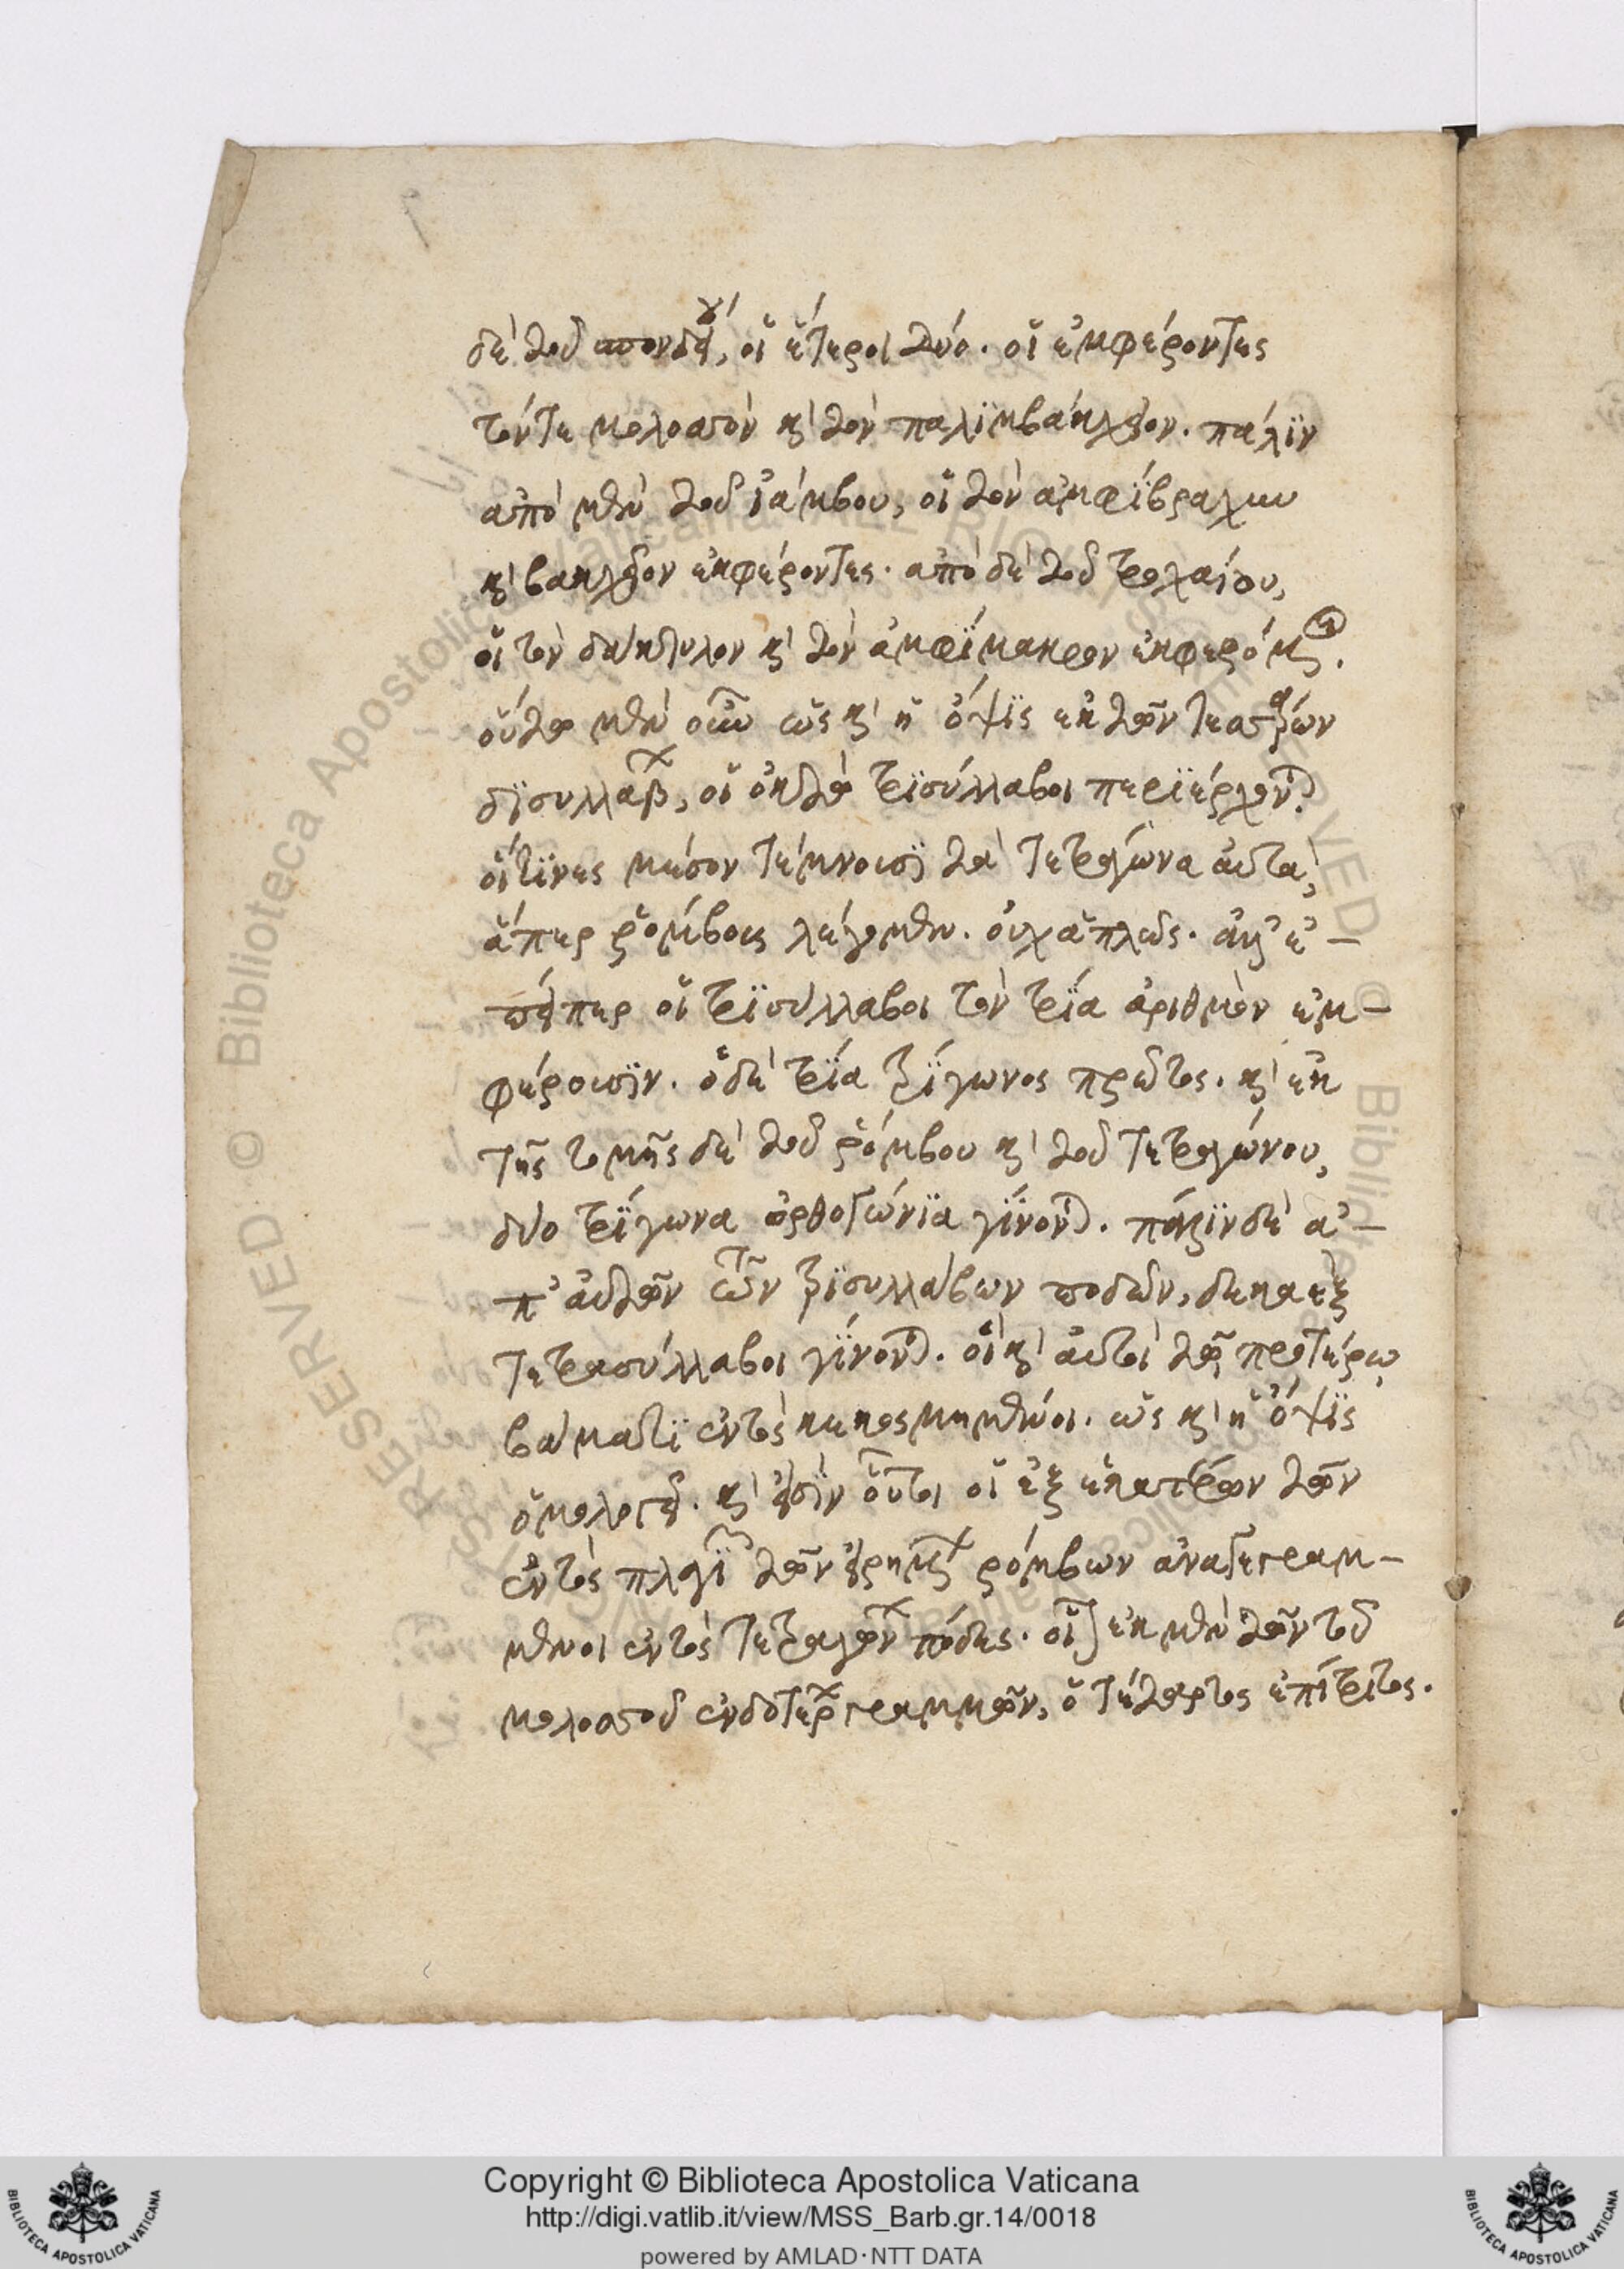 δὲ τοῦ σπονδείου, οἱ ἕτεροι δύο. οἱ ἐμφέροντες
τόν τε μολοσσὸν καὶ τὸν παλϊμβάκχειον. πάλϊν
ἀπὸ μὲν τοῦ ἰάμβου, οἱ τὸν ἀμφίβραχυν
καὶ βακχεῖον ἐκφέροντες. ἀπὸ δὲ τοῦ τροχαίου,
οἱ τὸν δάκτυλον καὶ τὸν ἀμφΐμακρον ἐκφερόμενοι.
οὕτω μὲν οὖν ὡς καὶ ἡ ὄψϊς ἐκ τῶν τεσσάρων
δϊσυλλάβων, οἱ ὀκτὼ τρϊσύλλαβοι περϊέρχονται.
οἵτϊνες μέσον τέμνουσϊ τὰ τετράγωνα αὐτὰ,
ἅπερ ῥόμβους λέγομεν. οὐχ ἁπλῶς. ἀλλ' ἐ-
πείπερ οἱ τρϊσύλλαβοι τὸν τρία ἀριθμὸν ἐμ-
φέρουσϊν. ὁ δὲ τρία τρΐγωνος πρῶτος. καὶ ἐκ
τῆς τομῆς δὲ τοῦ ῥόμβου καὶ τοῦ τετραγώνου,
δύο τρΐγωνα ὀρθογώνϊα γΐνονται. πάλϊν δὲ ἀ-
π' αὐτῶν τῶν τρϊσυλλάβων ποδῶν, δεκαὲξ
τετρασύλλαβοι γΐνονται. οἳ καὶ αὐτοὶ τῷ προτέρῳ
βάμματϊ ἐντὸς κεχρωσμένοι. ὡς καὶ ἡ ὄψϊς
ὁμολογεῖ. καὶ εἰσὶν οὗτοι οἱ ἐξ ἑκατέρων τῶν
ἐντὸς πλαγΐων τῶν εἰρημένων ῥόμβων ἀναγεγραμ-
μένοι ἐντὸς τετραγώνων πόδες. οἷον ἐκ μὲν τῶν τοῦ
μολοσσοῦ ἐνδοτέρω γραμμῶν, ὁ τέταρτος ἐπίτριτος.
Copyright © Biblioteca Apostolica Vaticana
http://digi.vatlib.it/view/MSS_Barb.gr.14/0018
powered by AMLAD·NTT DATA